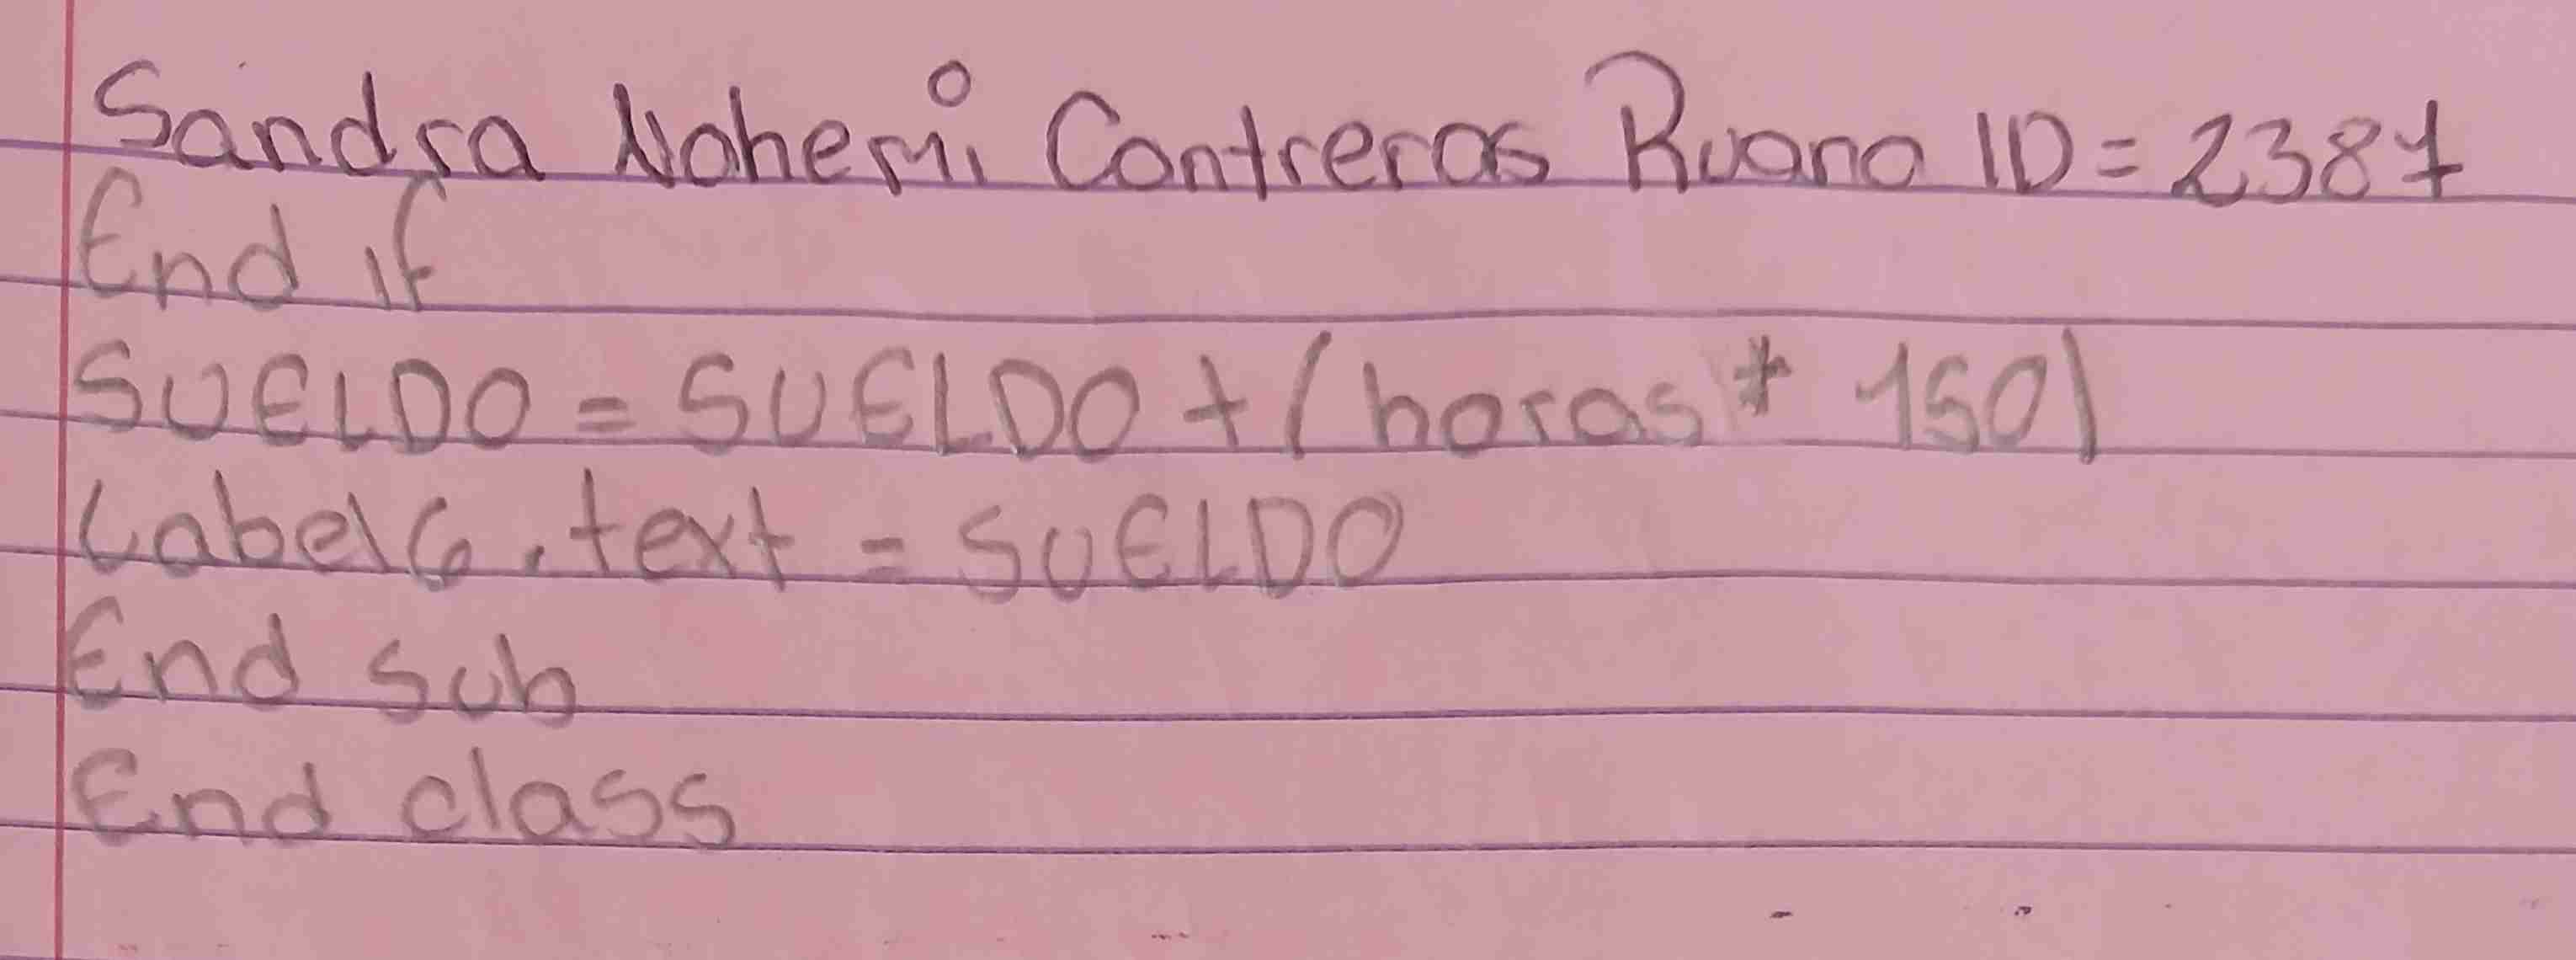 Sandra Nohemi Contreras Ruano ID = 2387
End if
SUELDO = SUELDO + (horas * 150)
Label6.text = SUELDO
End sub
End class